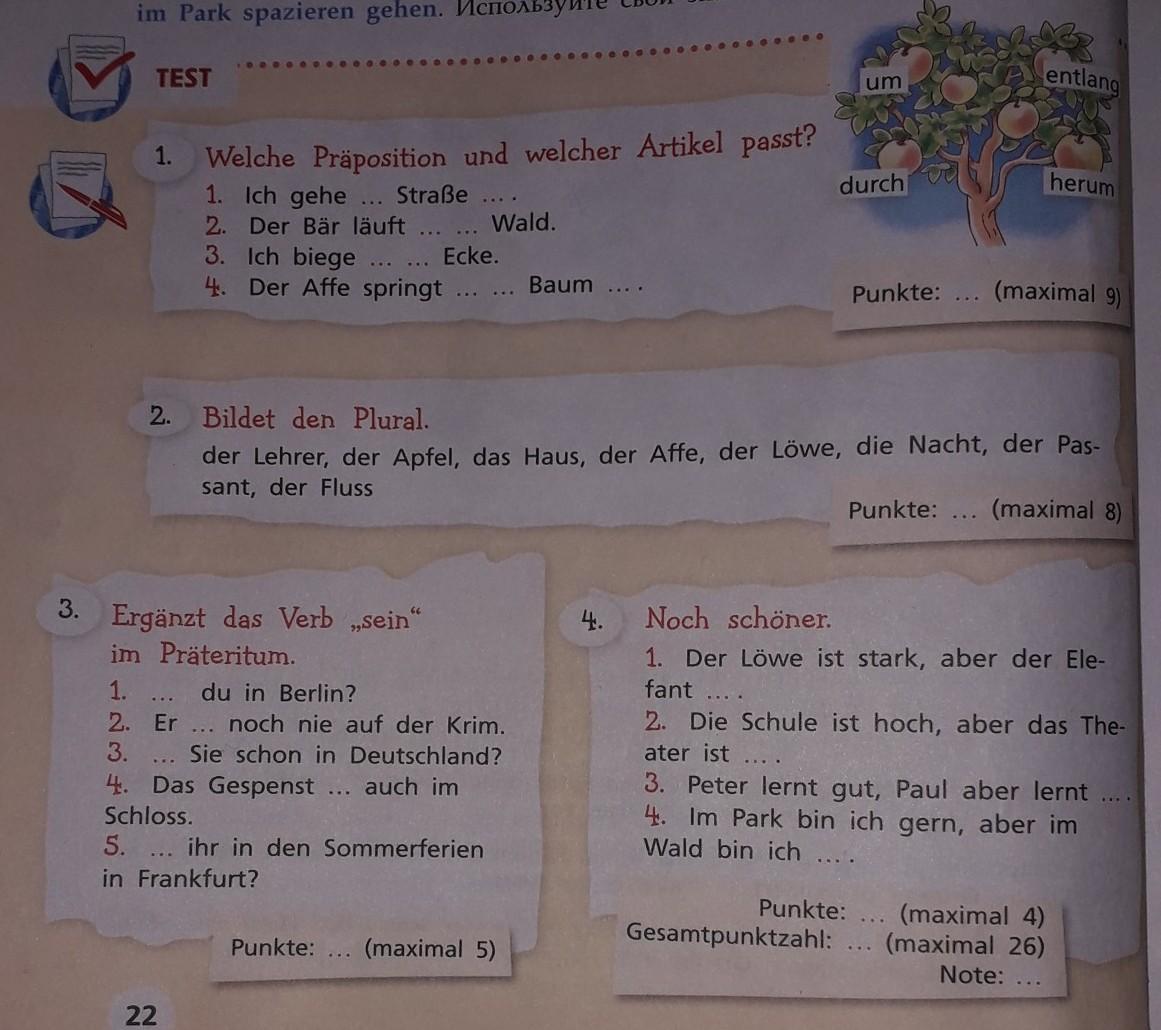 im Park spazieren gehen. Используйте свои
TEST
um
entlang
durch
herum
1. Welche Präposition und welcher Artikel passt?
1. Ich gehe ... Straße ... .
2. Der Bär läuft ... ... Wald.
3. Ich biege ... ... Ecke.
4. Der Affe springt ... ... Baum ... .
Punkte: ... (maximal 9)
2. Bildet den Plural.
der Lehrer, der Apfel, das Haus, der Affe, der Löwe, die Nacht, der Pas-
sant, der Fluss
Punkte: ... (maximal 8)
3. Ergänzt das Verb „sein“
im Präteritum.
1. ... du in Berlin?
2. Er ... noch nie auf der Krim.
3. ... Sie schon in Deutschland?
4. Das Gespenst ... auch im
Schloss.
5. ... ihr in den Sommerferien
in Frankfurt?
Punkte: ... (maximal 5)
4. Noch schöner.
1. Der Löwe ist stark, aber der Ele-
fant ... .
2. Die Schule ist hoch, aber das The-
ater ist ... .
3. Peter lernt gut, Paul aber lernt ... .
4. Im Park bin ich gern, aber im
Wald bin ich ... .
Punkte: ... (maximal 4)
Gesamtpunktzahl: ... (maximal 26)
Note: ...
22